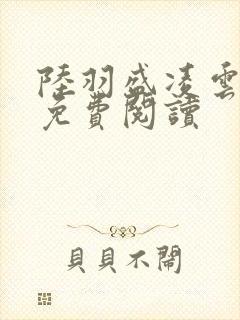 陸羽盛凌雲
免費閱讀
貝貝不鬧